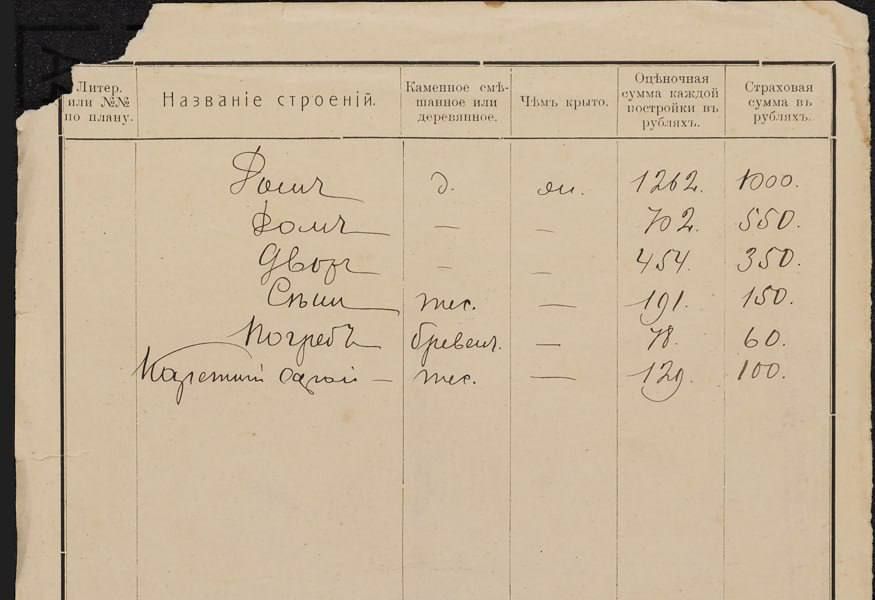 Литер. или №№ по плану. Названіе строеній. Каменное смѣшанное или деревянное. Чѣмъ крыто. Оцѣночная сумма каждой постройки въ рубляхъ. Страховая сумма въ рубляхъ.
Домъ д. 1262. 1000.
Домъ — — 702. 550.
Дворъ — — 454. 350.
Сѣни тес. — 191. 150.
Погребъ бревенч. — 78. 60.
Каретный сарай — тес. — 129. 100.